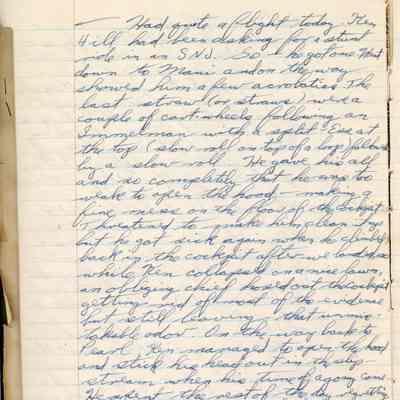 — Had quite a flight today. Ken
Hill had been asking for a stunt
ride in an SNJ. So – he got one. Went
down to Maui and on the way
showed him a few acrobatics. The
last straw (or straws) were a
couple of cartwheels following an
Immelman with a split Ess at
the top (slow roll on top of a loop) followed
by a slow roll. He gave his all
and so completely that he was too
weak to open the hood – making a
fine mess on the floor of the cockpit.
I threatened to make him clean
but he got sick again when he climbed
back in the cockpit after we landed so
while Ken collapsed on a nice lawn,
an obliging chief hosed out the cockpit
getting rid of most of the evidence
but still leaving that unmis-
takable odor. On the way back to
Pearl, Ken managed to open the hood
and stick his head out in the slip-
stream when his time of agony came.
He spent the rest of the day regretting